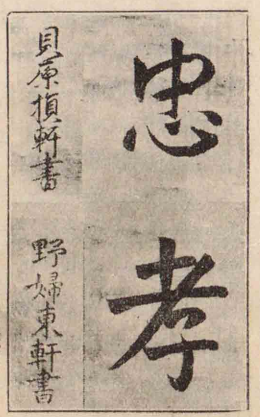 忠孝
貝原損軒書
野婦東軒書